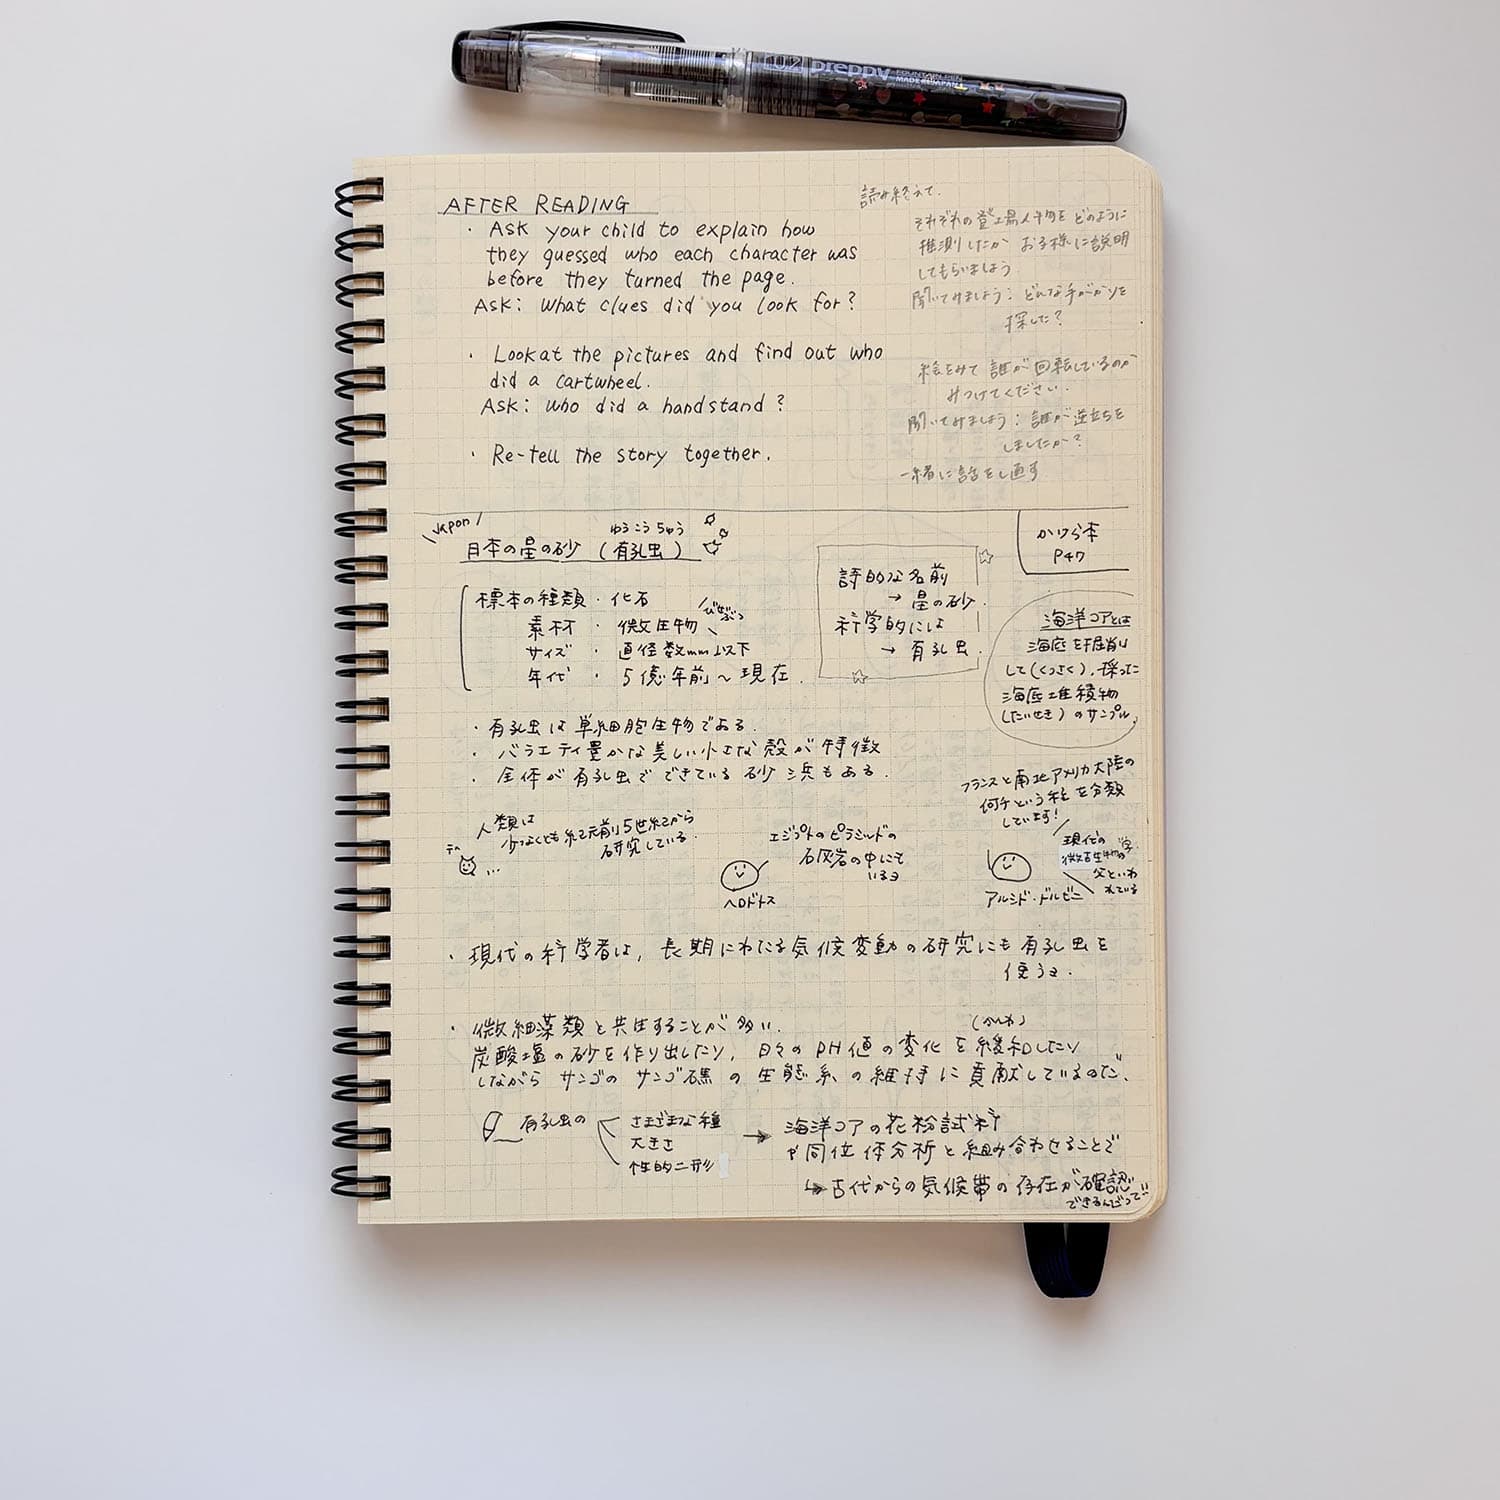 02 preppy
FOUNTAIN PEN
MADE IN JAPAN
AFTER READING
・Ask your child to explain how
they guessed who each character was
before they turned the page.
Ask: What clues did you look for?
・Look at the pictures and find out who
did a cartwheel.
Ask: Who did a handstand?
・Re-tell the story together.
読み終えて.
それぞれの登場人物をどのように
推測したか お子様に説明
してもらいましょう
聞いてみましょう: どんな手がかりを
探した?
絵をみて 誰が回転しているのか
みつけてください.
聞いてみましょう: 誰が逆立ちを
しましたか?
一緒に話をし直す
\Japon/
ゆうこうちゅう
日本の星の砂 (有孔虫)
かけら本
P47
標本の種類・化石
素材・微生物
びせいぶつ
サイズ・直径数mm以下
年代・5億年前〜現在.
詩的な名前
→ 星の砂.
科学的には
→ 有孔虫.
海洋コアとは
海底を掘削
して(くっさく), 採った
海底堆積物
(たいせき)のサンプル.
・有孔虫は単細胞生物である.
・バラエティ豊かな美しい小さな殻が特徴
・全体が有孔虫でできている砂浜もある.
人類は
少なくとも紀元前5世紀から
研究している.
...
エジプトのピラミッドの
石灰岩の中にて
いるヨ
ヘロドトス
フランスと南北アメリカ大陸の
何千という種を分類
しています!
現代の
微古生物学の
父といわ
れている
アルシド・ドルビニ
・現代の科学者は, 長期にわたる気候変動の研究にも有孔虫を
使うヨ.
・微細藻類と共生することが多い.
(かんわ)
炭酸塩の砂を作り出したり, 日々のPH値の変化を緩和したり
しながら サンゴのサンゴ礁の生態系の維持に貢献しているのだ.
有孔虫の
さまざまな種
大きさ
性的二形
→ 海洋コアの花粉試料
や同位体分析と組み合わせることで
↳ 古代からの気候帯の存在が確認
できるんだって!!